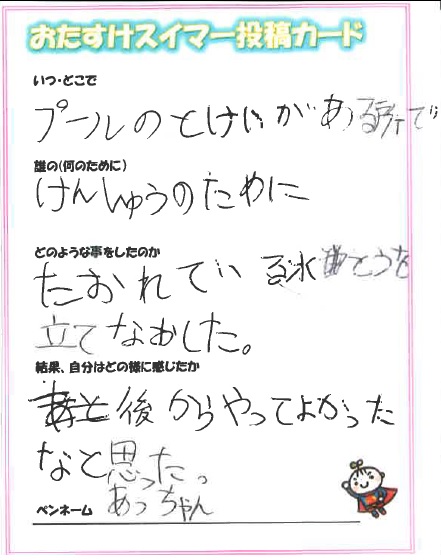 おたすけスイマー投稿カード
いつ・どこで
プールのとけいがある所で
誰の(何のために)
けんしゅうのために
どのような事をしたのか
たおれている水とうを
立てなおした。
結果、自分はどの様に感じたか
後からやってよかった
なと思った。
ペンネーム あっちゃん